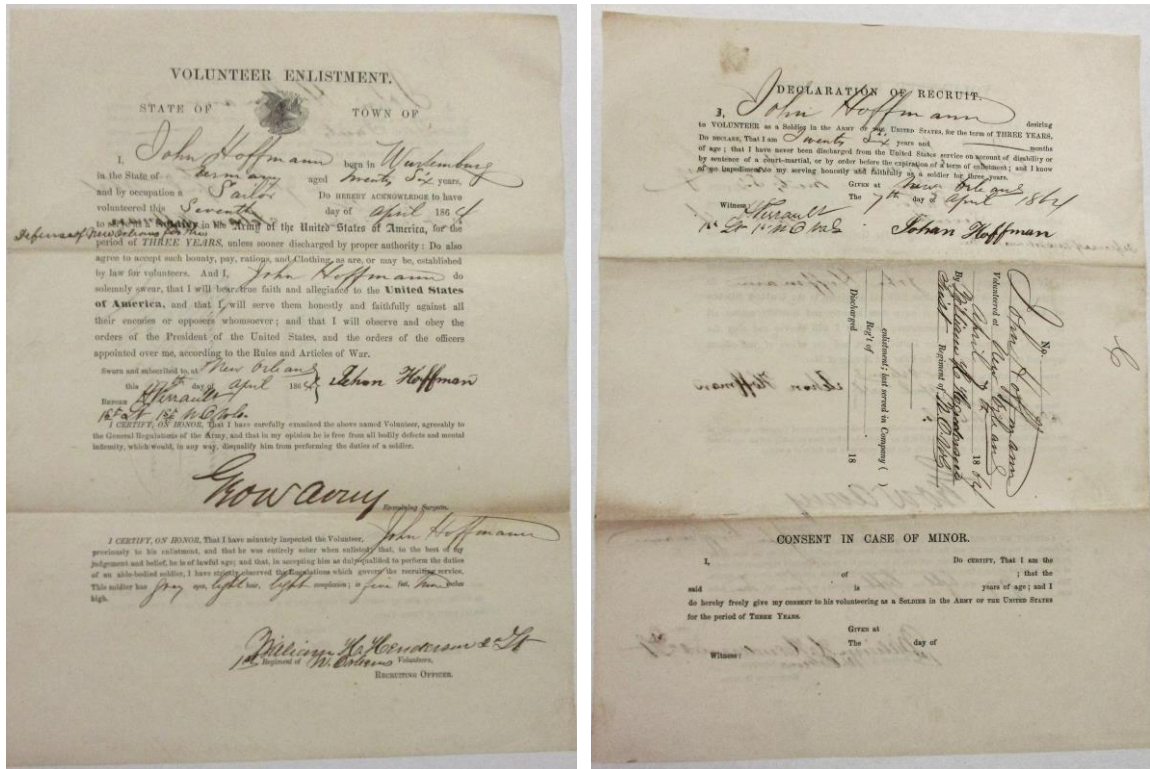 VOLUNTEER ENLISTMENT.
STATE OF TOWN OF
I, John Hoffmann born in Wurtemburg
in the State of Germany aged twenty six years,
and by occupation a Sailor Do HEREBY ACKNOWLEDGE to have
volunteered this Seventh day of April 1864
to serve as a Soldier in the Army of the United States of America, for the
Defense of New Orleans for the
period of THREE YEARS, unless sooner discharged by proper authority: Do also
agree to accept such bounty, pay, rations, and Clothing, as are, or may be, established
by law for volunteers. And I, John Hoffmann do
solemnly swear, that I will bear true faith and allegiance to the United States
of America, and that I will serve them honestly and faithfully against all
their enemies or opposers whomsoever; and that I will observe and obey the
orders of the President of the United States, and the orders of the officers
appointed over me, according to the Rules and Articles of War.
Sworn and subscribed to, at New Orleans
this 7th day of April 1864 } Johan Hoffman
BEFORE Perrault
1st Lt 1st N O Vols
I CERTIFY, ON HONOR, That I have carefully examined the above named Volunteer, agreeably to
the General Regulations of the Army, and that in my opinion he is free from all bodily defects and mental
infirmity, which would, in any way, disqualify him from performing the duties of a soldier.
Geo W Avery
Examining Surgeon.
I CERTIFY, ON HONOR, That I have minutely inspected the Volunteer, John Hoffmann
previously to his enlistment, and that he was entirely sober when enlisted; that, to the best of my
judgement and belief, he is of lawful age; and that, in accepting him as duly qualified to perform the duties
of an able-bodied soldier, I have strictly observed the Regulations which govern the recruiting service.
This soldier has gray eyes, light hair, light complexion; is five feet, nine inches
high.
William H. Henderson 2 Lt
1st Regiment of N. Orleans Volunteers,
RECRUITING OFFICER.
DECLARATION OF RECRUIT.
I, John Hoffmann desiring
to VOLUNTEER as a Soldier in the ARMY OF THE UNITED STATES, for the term of THREE YEARS,
Do DECLARE, That I am Twenty Six years and months
of age; that I have never been discharged from the United States service on account of disability or
by sentence of a court-martial, or by order before the expiration of a term of enlistment; and I know
of no impediment to my serving honestly and faithfully as a soldier for three years.
GIVEN at New Orleans
The 7th day of April 1864
Witness: Perrault
1st Lt 1st N O Vols Johan Hoffman
No.
John Hoffmann
Volunteered at New Orleans
April 7th 1864
By William H Henderson
First Regiment of N.O. Vols
enlistment; last served in Company ( )
Reg't of
Discharged 18
CONSENT IN CASE OF MINOR.
I, Do CERTIFY, That I am the
of ; that the
said is years of age; and I
do hereby freely give my CONSENT to his volunteering as a SOLDIER in the ARMY OF THE UNITED STATES
for the period of THREE YEARS.
GIVEN at
The day of
Witness: